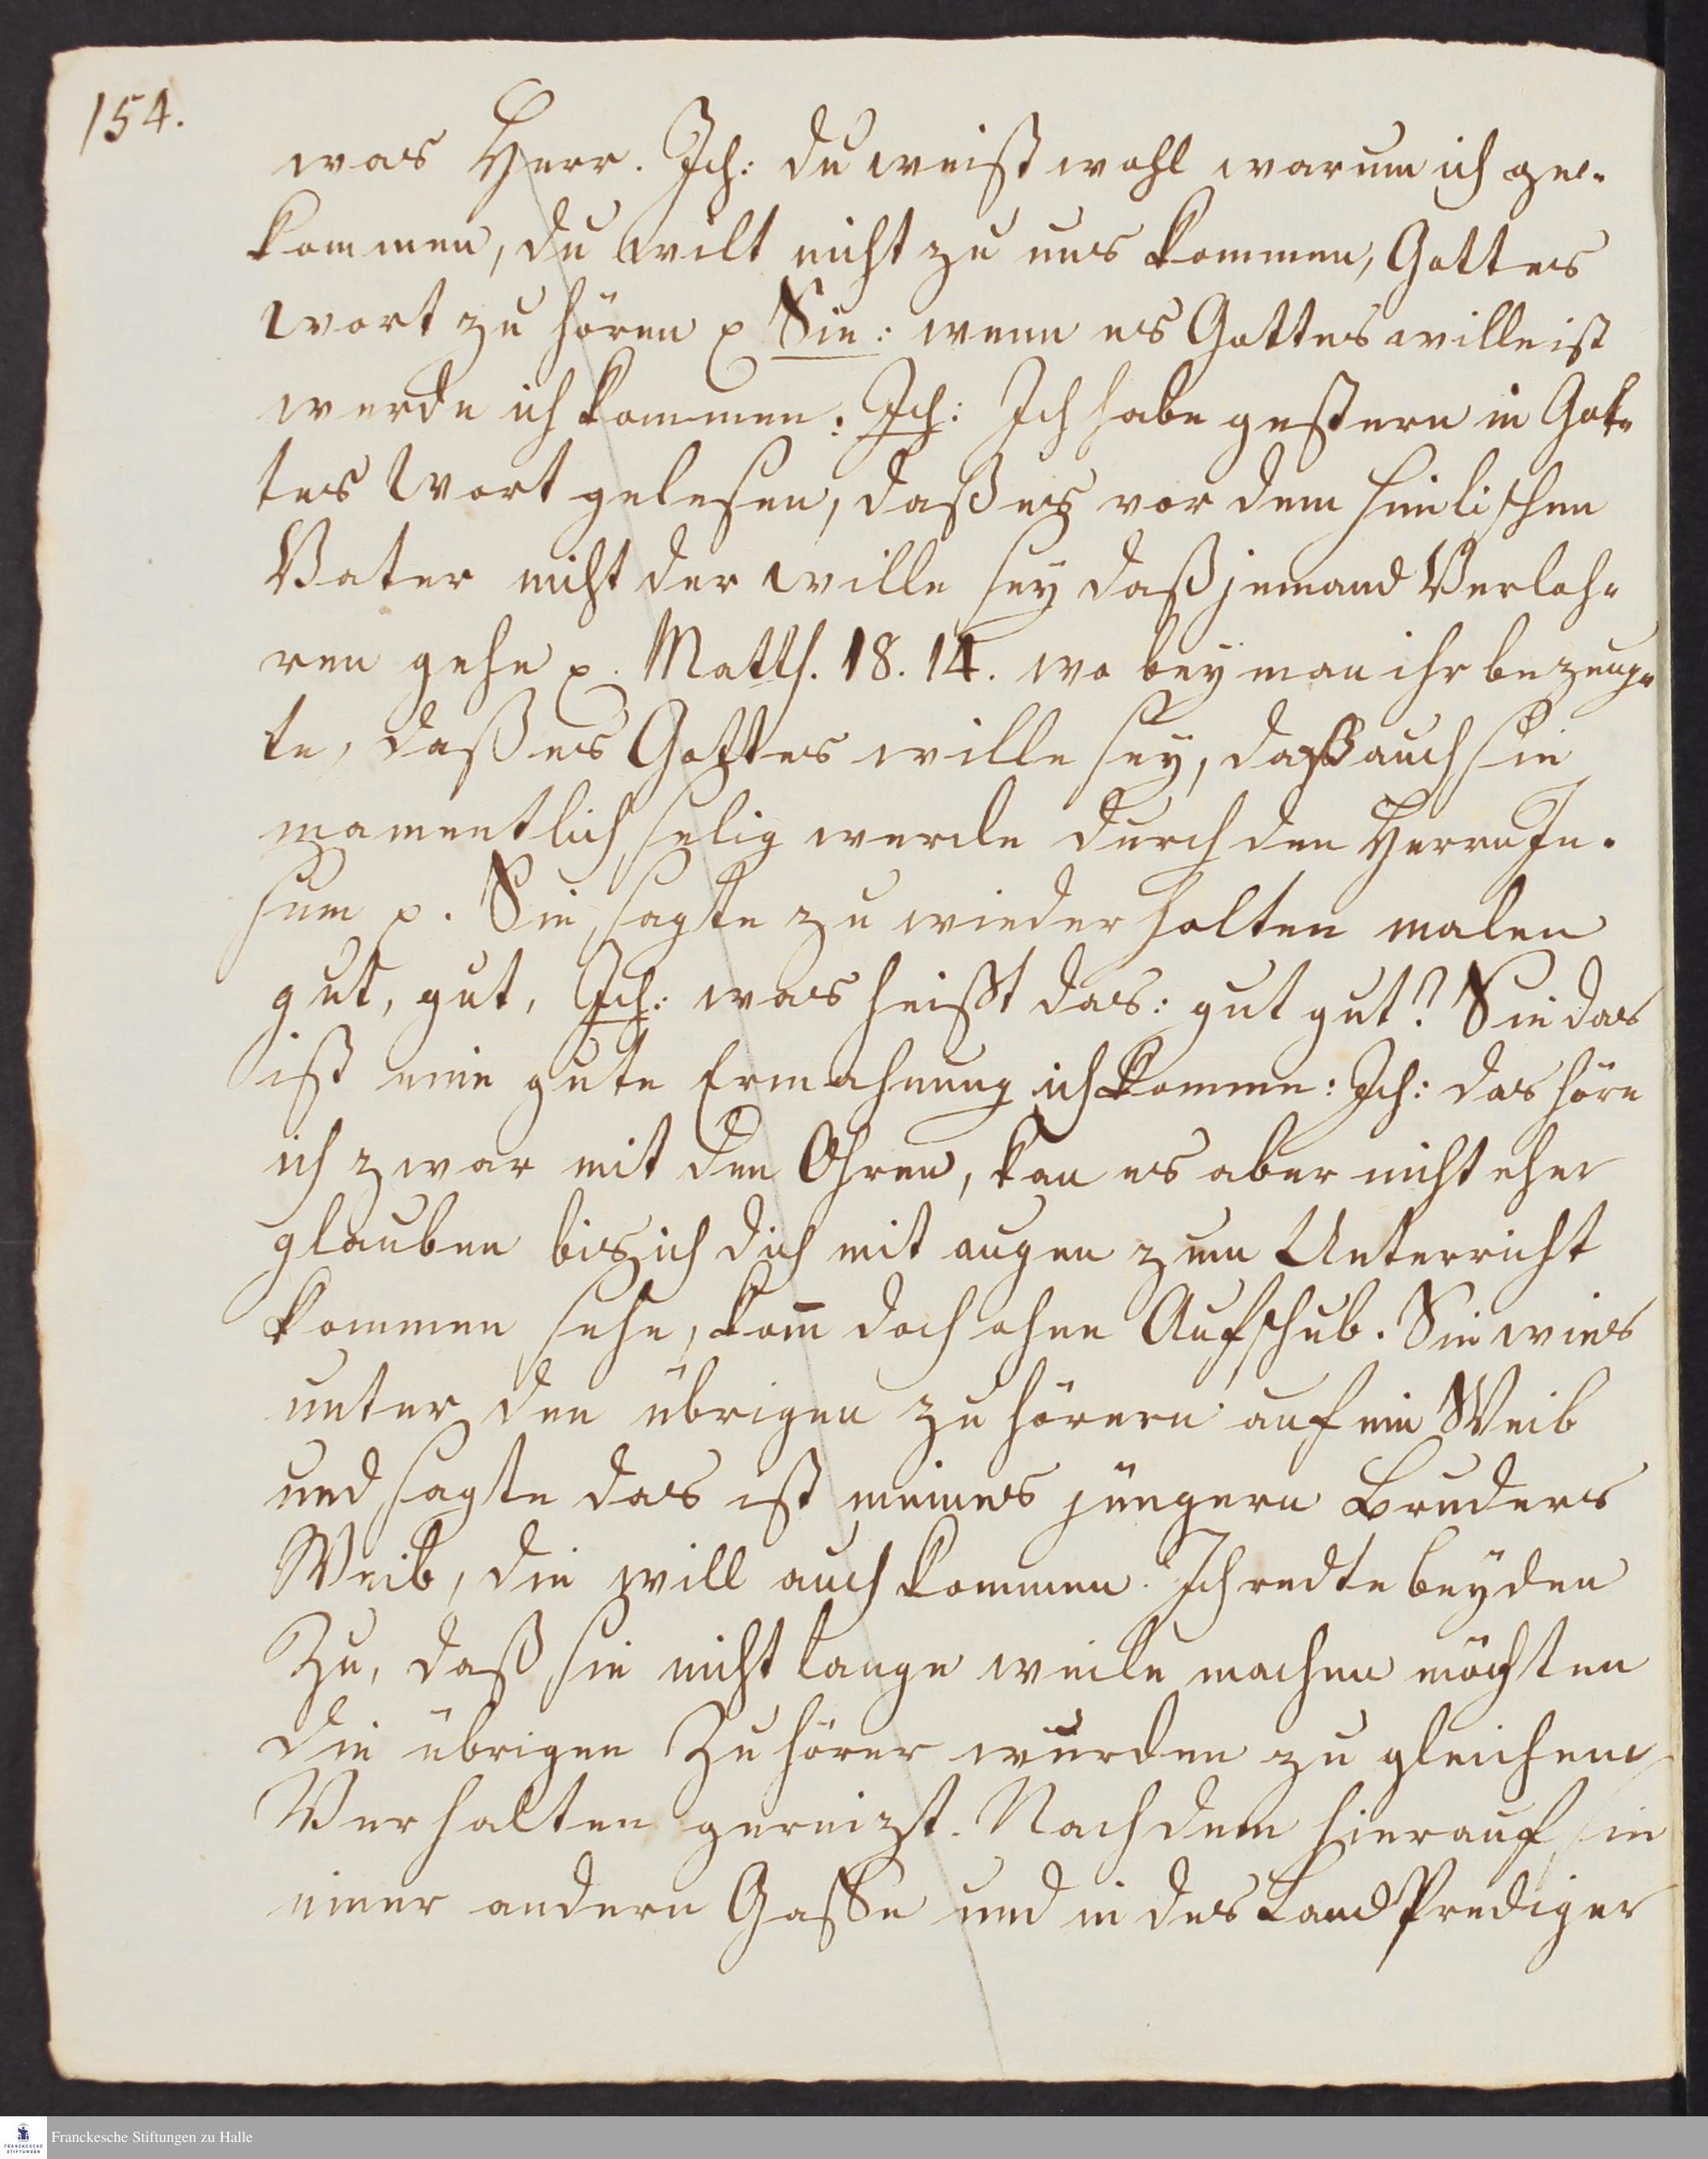 154.
was Herr. Ich: du weist wohl warum ich ge-
kommen, du wilt nicht zu uns kommen, Gottes
Wort zu hören p Sie: wenn es Gottes wille ist
werde ich kommen: Ich: Ich habe gestern in Got-
tes Wort gelesen, daß es vor dem himlischen
Vater nicht der wille sey daß jemand Verloh-
ren gehe p. Matth. 18. 14. wo bey man ihr bezeug-
te, daß es Gottes wille sey, daß auch sie
namentlich selig werde durch den Herrn Je-
sum p. Sie sagte zu wieder holten malen
gut, gut, Ich: was heißt das: gut gut? Sie das
ist eine gute Ermahnung ich komme: Ich: das höre
ich zwar mit den Ohren, kan es aber nicht eher
glauben bis ich dich mit augen zum Unterricht
kommen sehe, kom̄ doch ohne Aufschub. Sie wies
unter den übrigen zu hörern auf ein Weib
und sagte das ist meines jüngern Bruders
Weib, die will auch kommen. Ich redte beyden
Zu, daß sie nicht lange weile machen möchten
die übrigen Zu hörer wurden zu gleichem
Verhalten gereizt. Nach dem hierauf in
einer andern Gasse und in des Land Prediger
Franckesche Stiftungen zu Halle
FRANCKESCHE
STIFTUNGEN